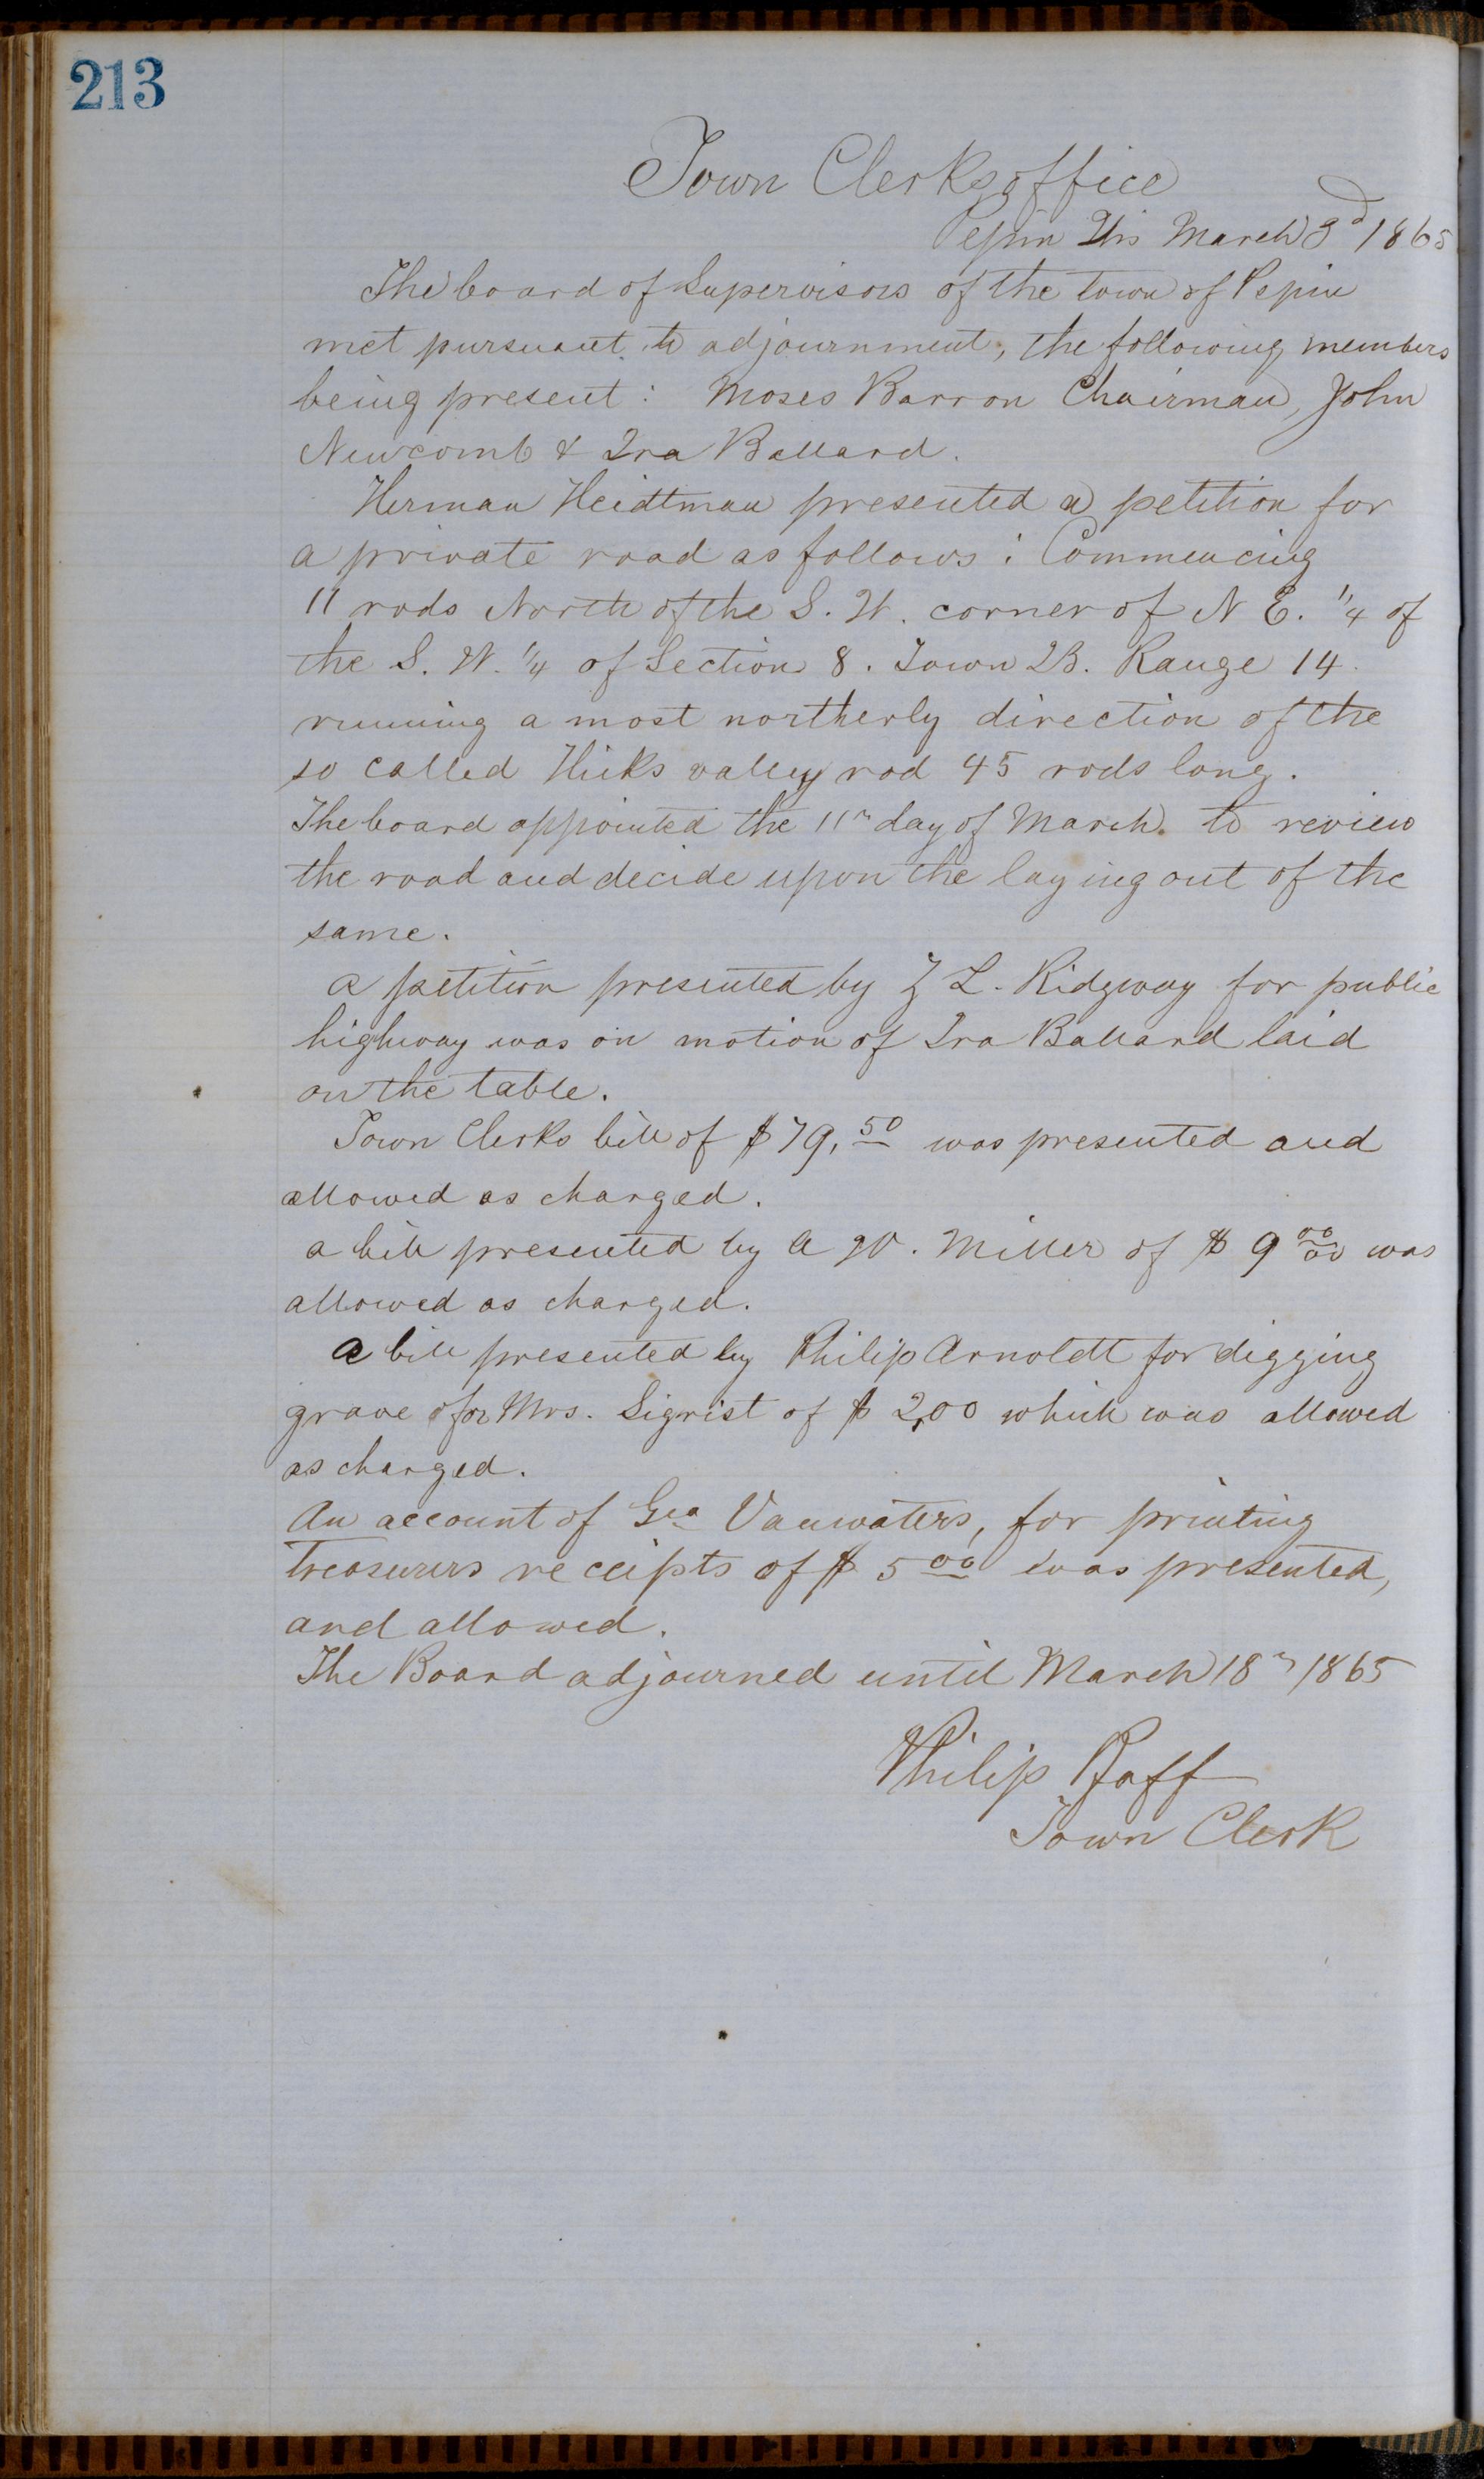 213
Town Clerks office
Pepin Wis March 3d 1865
The board of Supervisors of the town of Pepin
met pursuant to adjournment, the following members
being present: Moses Barron Chairman, John
Newcomb & Ira Ballard.
Herman Heidtman presented a petition for
a private road as follows: Commencing
11 rods North of the S. W. corner of N E. 1/4 of
the S. W. 1/4 of Section 8. Town 23. Range 14.
running a most northerly direction of the
so called Hicks valley rod 45 rods long.
The board appointed the 11th day of March. to review
the road and decide upon the laying out of the
same.
a petition presented by Z L. Ridgway for public
highway was on motion of Ira Ballard laid
on the table.
Town Clerks bill of $79,50 was presented and
allowed as charged.
a bill presented by A W. Miller of $9 00/00 was
allowed as charged.
A bill presented by Philip Arnoldt for digging
grave for Mrs. Sigrist of $2,00 which was allowed
as charged.
An account of Geo Vanwaters, for printing
treasurers receipts of $5 00 was presented,
and allowed.
The Board adjourned until March 18th 1865
Philip Pfaff
Town Clerk